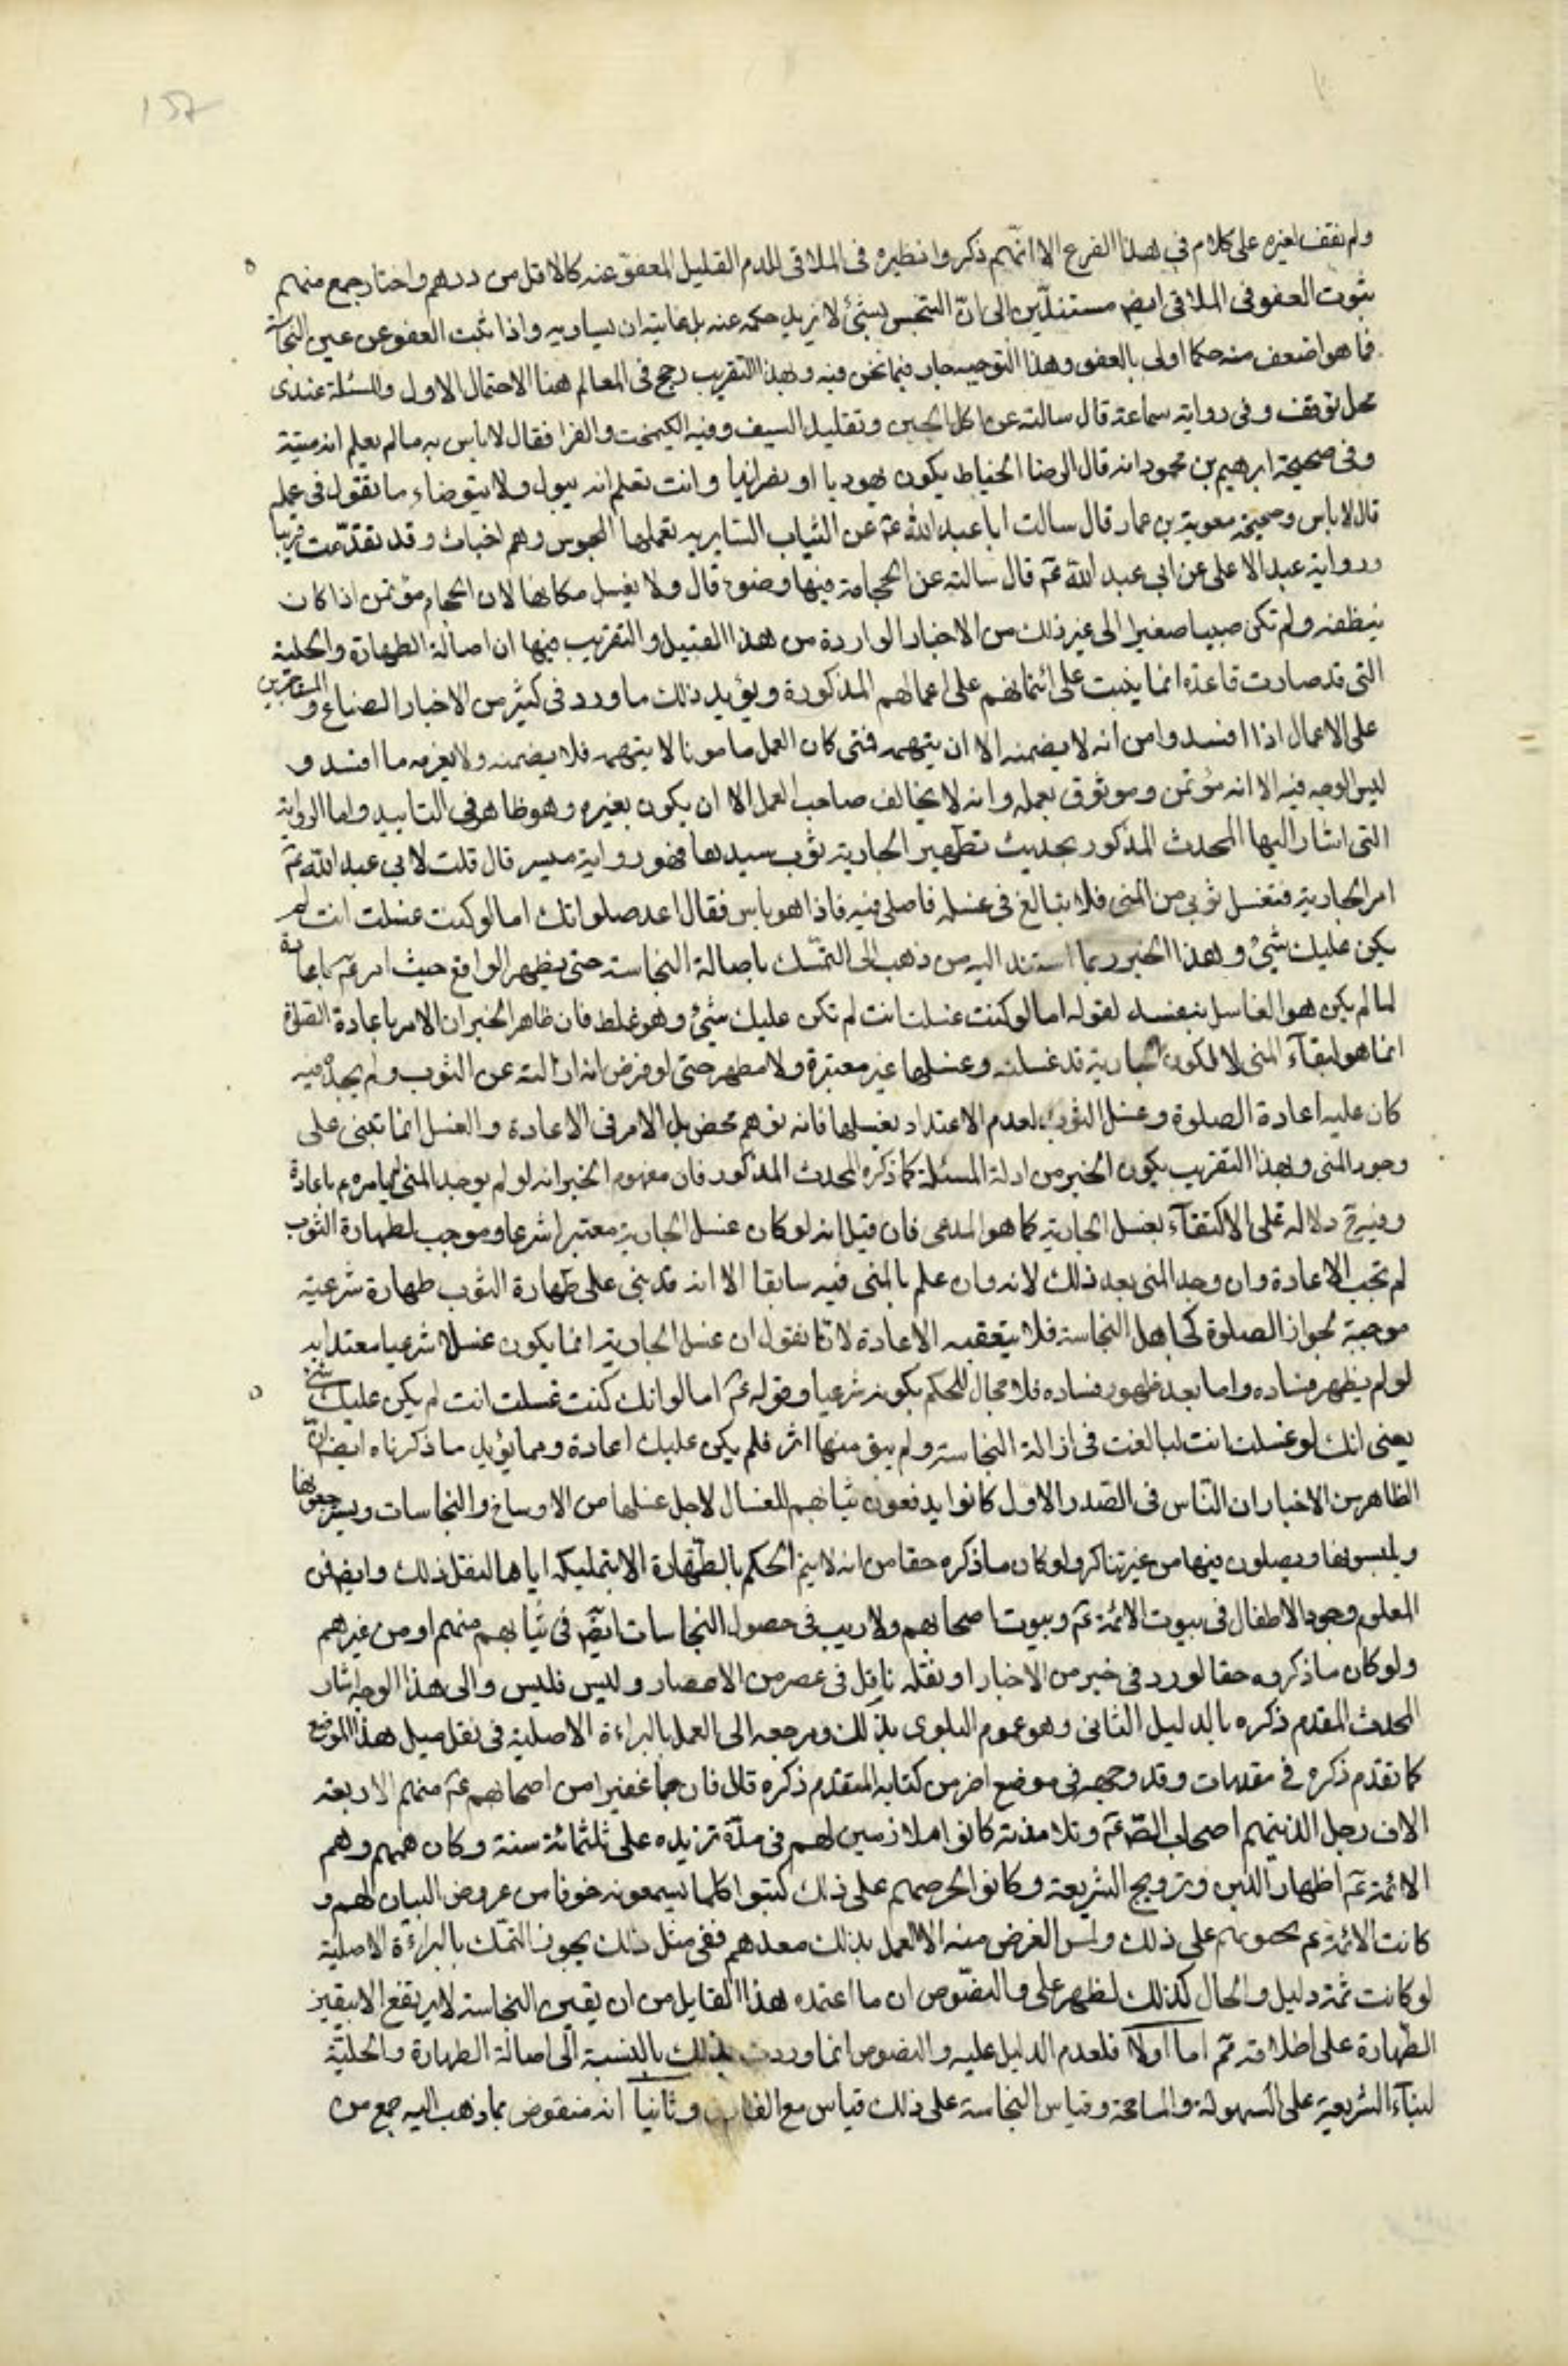 157
ولم نقف لغيره على كلام في هذا الفرع الا انهم ذكروا نظيره في الملاقى للدم القليل المعفو عنه كالاقل من درهم واختار جمع منهم
ثبوت العفو في الملاقى ايضا مستندين الى ان المتنجس بشئ لا يزيد حكمه عنه بل غايته ان يساويه واذا ثبت العفو عن عين النجاسة
فما هو اضعف منه حكما اولى بالعفو وهذا التوجيه جار فيما نحن فيه وبهذا التقريب رجح في المعالم هنا الاحتمال الاول والمسئلة عندى
محل توقف وفى رواية سماعة قال سالته عن اكل الجبن وتقليد السيف وفيه الكيمخت والفرا فقال لا باس به ما لم يعلم انه ميتة
وفى صحيحة ابرهيم بن محمود انه قال الرضا الخياط يكون يهوديا او نصرانيا وانت تعلم انه يبول ولا يتوضاء ما تقول في عمله
قال لا باس وصحيحة معوية بن عمار قال سالت ابا عبد الله عم عن الثياب السابرية تعملها المجوس وهم اخباث وقد تقدمت قريبا
ورواية عبد الاعلى عن ابى عبد الله عم قال سالته عن الحجامة فيها وضوء قال ولا يغسل مكانها لان الحجام مؤتمن اذا كان
ينظفه ولم تكن صبيا صغيرا الى غير ذلك من الاخبار الواردة من هذا القبيل والتقريب فيها ان اصالة الطهارة والحلية
التى قد صارت قاعدة انما يبنت على ائتمانهم على اعمالهم المذكورة ويؤيد ذلك ما ورد فى كثير من الاخبار الصناع و
على الاعمال اذا افسدوا من انه لا يضمنه الا ان يتهمه فمتى كان العمل مامونا لا يتهمه فلا يضمنه ولا يغرمه ما افسد و
ليس الوجه فيه الا انه مؤتمن وموثوق بعمله وانه لا يخالف صاحب العمل الا ان يكون بغيره وهو ظاهر في التاييد واما الرواية
التى اشار اليها المحدث المذكور بحديث تطهير الجارية ثوب سيدها فهو رواية ميسر قال قلت لابي عبد الله عم
امر الجارية فتغسل ثوبي من المنى فلا تبالغ فى غسله فاصلى فيه فاذا هو يابس فقال اعد صلواتك اما لو كنت غسلت انت لم
يكن عليك شئ وهذا الخبر ربما استند اليه من ذهب الى التمسك باصالة النجاسة حتى يظهر الواقع حيث امر عم باعادة
لما لم يكن هو الغاسل بنفسه لقوله اما لو كنت غسلت انت لم تكن عليك شئ وهو غلط فان ظاهر الخبر ان الامر باعادة الصلوة
انما هو لبقاء المنى لا لكون الجارية قد غسلته وغسلها غير معتبرة ولا مطهر حتى لو فرض انه ازالته عن الثوب ولم يجده فيه
كان عليه اعادة الصلوة وغسل الثوب لعدم الاعتداد بغسلها فانه توهم محض بل الامر فى الاعادة والغسل انما تبنى على
وجود المنى وبهذا التقريب يكون الخبر من ادلة المسئلة كما ذكره المحدث المذكور فان مفهوم الخبر انه لو لم يوجد المنى لم يامره عم باعادة
وفيه ح دلالة على الاكتفاء بغسل الجارية كما هو المدعى فان قيل انه لو كان غسل الجارية معتبرا شرعا وموجب لطهارة الثوب
لم تجب الاعادة وان وجد المنى بعد ذلك لانه وان علم بالمنى فيه سابقا الا انه قد بنى على طهارة الثوب طهارة شرعية
موجبة لجواز الصلوة كجاهل النجاسة فلا يتعقبه الاعادة لانا نقول ان غسل الجارية انما يكون غسلا شرعيا معتدا به
لو لم يظهر فساده واما بعد ظهور فساده فلا مجال للحكم بكونه شرعيا وقوله عم اما لو انك كنت غسلت انت لم يكن عليك شئ
يعنى انك لو غسلت انت لبالغت فى ازالة النجاسة ولم يبق منها اثر فلم يكن عليك اعادة ومما يؤيد ما ذكرناه ايضا ان
الظاهر من الاخبار ان الناس فى الصدر الاول كانوا يدفعون ثيابهم للغسال لاجل غسلها من الاوساخ والنجاسات ويسترجعونها
ويلبسونها ويصلون فيها من غير تناكر ولو كان ما ذكره حقا من انه لا يتم الحكم بالطهارة الا بتمليكه اياها لنقل ذلك وايضا فمن
المعلوم وجود الاطفال فى بيوت الائمة عم وبيوت اصحابهم ولا ريب فى حصول النجاسات ايضا فى ثيابهم منهم او من غيرهم
ولو كان ما ذكروه حقا لورد فى خبر من الاخبار او نقله ناقل فى عصر من الاعصار وليس فليس والى هذا الوجه اشار
المحدث المقدم ذكره بالدليل الثانى وهو عموم البلوى بذلك ومرجعه الى العمل بالبراءة الاصلية فى نقل مثل هذا الموضع
كما تقدم ذكره فى مقدمات وقد وجهه فى موضع اخر من كتابه المتقدم ذكره قال فان جما غفيرا من اصحابهم عم منهم الاربعة
الاف رجل الذينهم اصحاب الص عم وتلامذته كانوا ملازمين لهم فى مدة تزيده على ثلثمائة سنة وكان همهم وهم
الائمة عم اظهار الدين وترويج الشريعة وكانوا لحرصهم على ذلك كتبوا كلما يسمعونه خوفا من عروض النسيان لهم و
كانت الائمة عم يحثونهم على ذلك وليس الغرض منه الا العمل بذلك بعدهم ففى مثل ذلك يجوز التمسك بالبراءة الاصلية
لو كانت ثمة دليل والحال كذلك لظهر على والنصوص ان ما اعتمده هذا القايل من ان يقين النجاسة لا يرتفع الا بيقين
الطهارة على اطلاقه ثم اما اولا فلعدم الدليل عليه والنصوص انما وردت بذلك بالنسبة الى اصالة الطهارة والحلية
لبناء الشريعة على السهولة والسامحة وقياس النجاسة على ذلك قياس مع الفارق وثانيا انه منقوض بما ذهب اليه جمع من